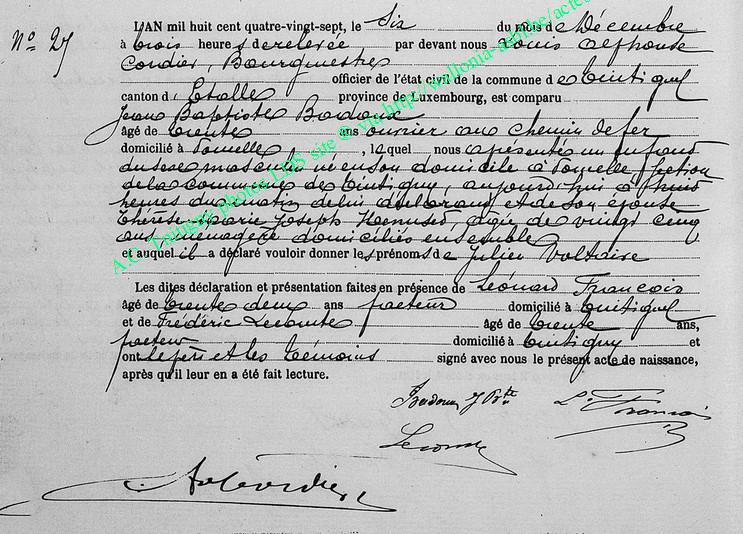 N° 27
L'AN mil huit cent quatre-vingt-sept, le Six du mois de Décembre
à trois heures de relevée par devant nous Louis Alphonse
Cordier, Bourgmestre
officier de l'état civil de la commune de Tintigny
canton d'Etalle province de Luxembourg, est comparu
Jean Baptiste Badoux
âgé de trente ans ouvrier au chemin de fer
domicilié à , lequel nous a présenté un enfant
du sexe masculin né en son domicile à , section
de la commune de Tintigny, aujourd'hui à huit
heures du matin de lui déclarant et de son épouse
Thérèse Marie Joseph , âgée de vingt cinq
ans ménagère domiciliés ensemble
et auquel il a déclaré vouloir donner les prénoms de Julien Voltaire
Les dites déclaration et présentation faites en présence de Léonard François
âgé de trente deux ans facteur domicilié à Tintigny
et de Frédéric Lecomte âgé de trente ans,
facteur domicilié à Tintigny et
ont le père et les témoins signé avec nous le présent acte de naissance,
après qu'il leur en a été fait lecture.
Badoux J Bte L. François
Lecomte
A. Cordier
A.C. Tintigny photos LDS site @ via http://wallonia-asbl.be/actes